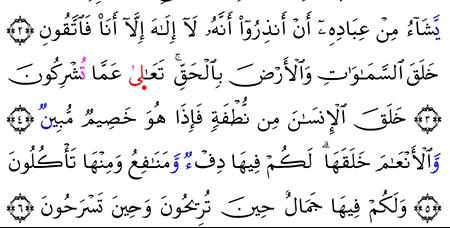 يَّشَآءُ مِنْ عِبَادِهِۦٓ أَنْ أَنذِرُوٓا۟ أَنَّهُۥ لَآ إِلَٰهَ إِلَّآ أَنَا۠ فَٱتَّقُونِ ﴿٢﴾
خَلَقَ ٱلسَّمَٰوَٰتِ وَٱلْأَرْضَ بِٱلْحَقِّ ۚ تَعَٰلَىٰ عَمَّا تُشْرِكُونَ
﴿٣﴾ خَلَقَ ٱلْإِنسَٰنَ مِن نُّطْفَةٍ فَإِذَا هُوَ خَصِيمٌ مُّبِينٌ ﴿٤﴾
وَٱلْأَنْعَٰمَ خَلَقَهَا ۗ لَكُمْ فِيهَا دِفْءٌ وَمَنَٰفِعُ وَمِنْهَا تَأْكُلُونَ
﴿٥﴾ وَلَكُمْ فِيهَا جَمَالٌ حِينَ تُرِيحُونَ وَحِينَ تَسْرَحُونَ ﴿٦﴾